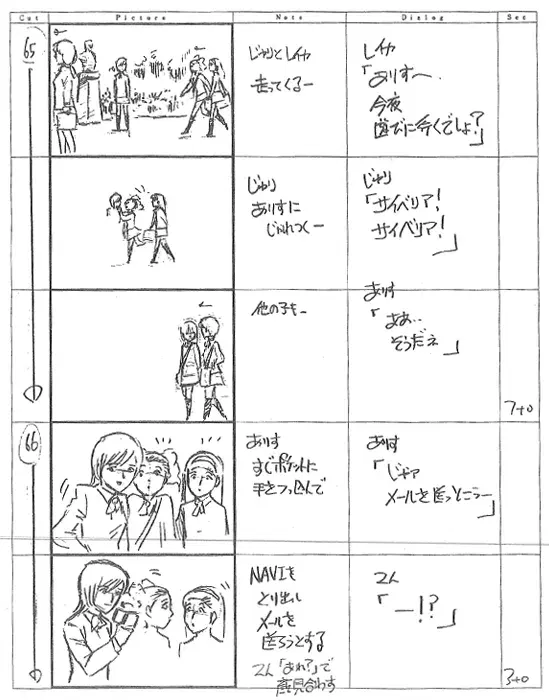 Cut
Picture
Note
Dialog
Sec
65
じゅりとレイカ
走ってくるー
レイカ
「ありす〜
今夜
遊びに行くでしょ?」
じゅり
ありすに
じゃれつくー
じゅり
「サイベリア!
サイベリア!
」
他の子も
ありす
「ああ‥
そうだネ
」
7+0
66
ありす
すぐポケットに
手をつっ込んで
ありす
「じゃァ
メールを送っとこうー
」
NAVIを
とり出し
メールを
送ろうとする
2人「あれ?」で
顔見合わす
2人
「ー!?」
3+0